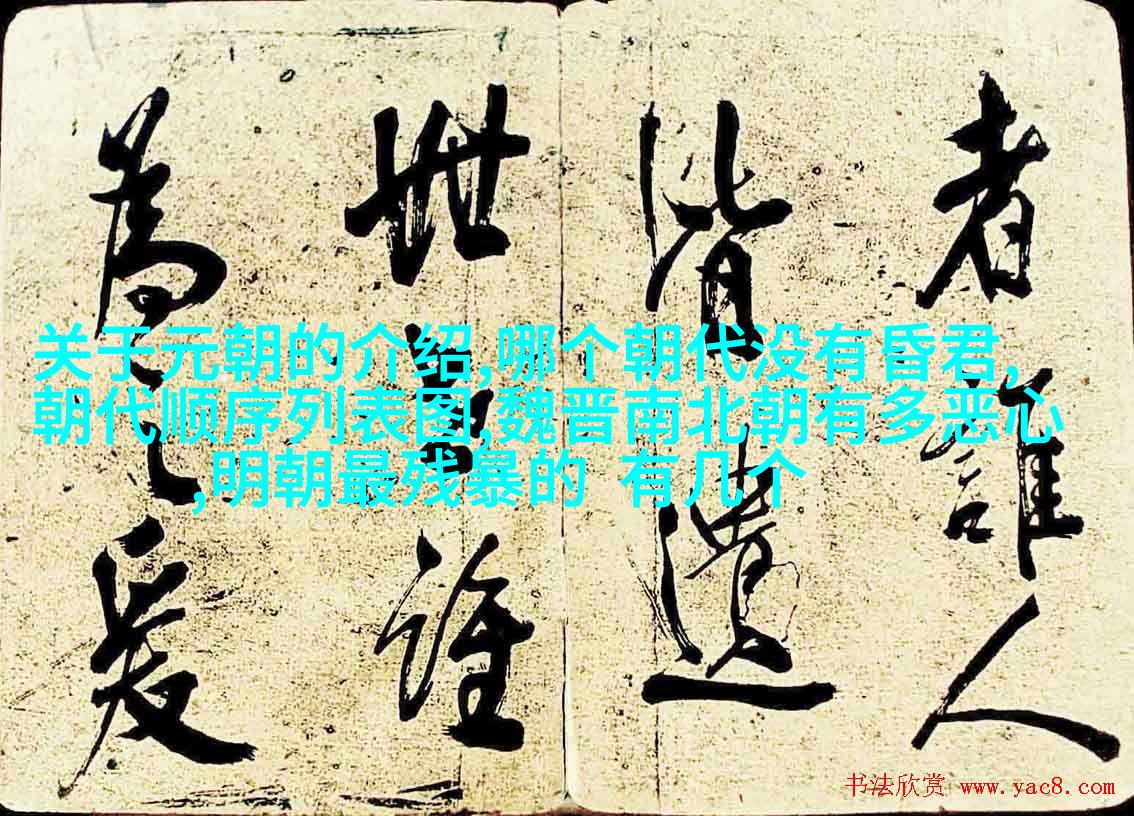 者誰人
皆遺
世誰
為之爰
关于元朝的介绍,哪个朝代没有昏君,
朝代顺序列表图,魏晋南北朝有多恶心
,明朝最残暴的 有几个
书法欣赏 www.yac8.com